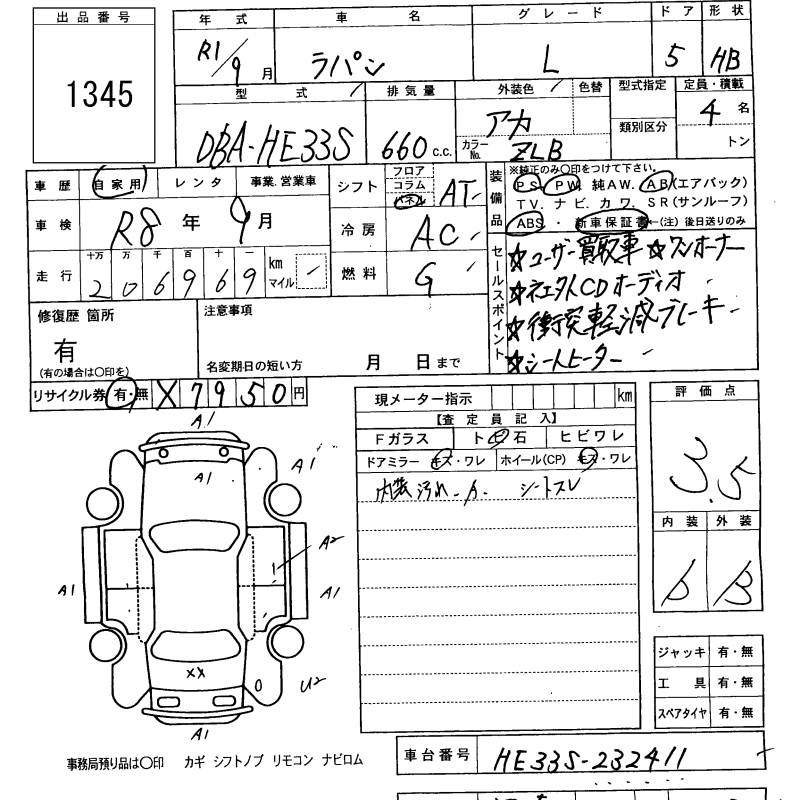 出品番号
1345
年式 車名 グレード ドア 形状
R1/9月 ラパン L 5 HB
型式 排気量 外装色 色替 型式指定 定員・積載
DBA-HE33S 660c.c. アカ 類別区分 4名
カラーNo. ZLB トン
車歴 自家用 レンタ 事業.営業車
車検 R8年9月
走行 十万 万 千 百 十 一 km マイル
206969
シフト フロア コラム パネル AT
冷房 AC
燃料 G
装備品
※純正のみ〇印をつけて下さい。
PS. PW. 純AW. AB(エアバック)
TV. ナビ. カワ. SR(サンルーフ)
ABS ・ 新車保証書←(注)後日送りのみ
セールスポイント
☆ユーザー買取車 ☆ワンオーナー
☆社外CDオーディオ
☆衝突軽減ブレーキ
☆シートヒーター
修復歴 箇所
有
(有の場合は〇印を)
注意事項
名変期日の短い方 月 日まで
リサイクル券 有・無 X7950円
現メーター指示 km
【査定員記入】
Fガラス トビ石 ヒビワレ
ドアミラー キズ・ワレ ホイール(CP) キズ・ワレ
内装汚れ シートスレ
評価点
3.5
内装 外装
B
ジャッキ 有・無
工具 有・無
スペアタイヤ 有・無
A1
A1
A1
A2
A1
A1
XX
U2
A1
事務局預り品は〇印 カギ シフトノブ リモコン ナビロム
車台番号 HE33S-232411